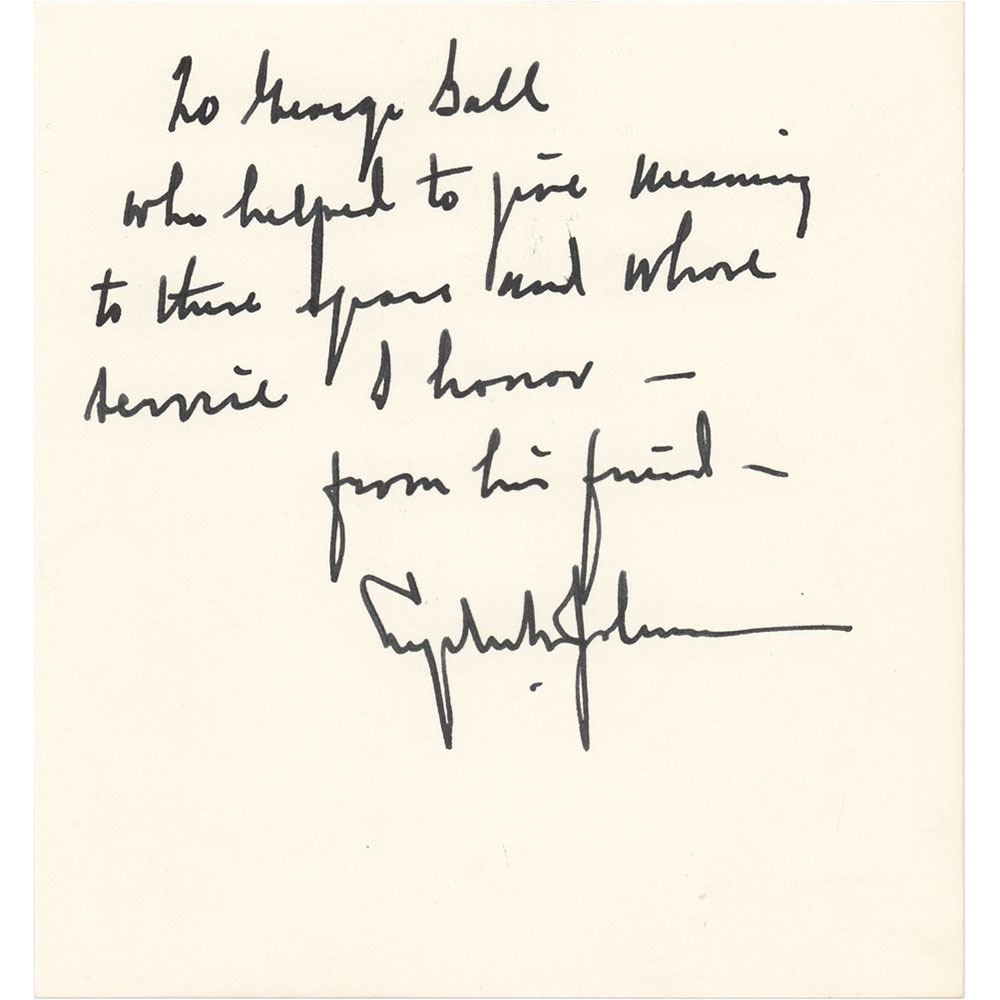 To George Ball
who helped to give meaning
to these years and whose
service I honor —
from his friend —
Lyndon B. Johnson